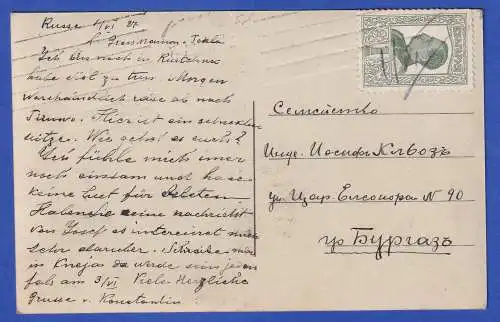 Russe 1/VI 27.
L. Grossmama - Tekla
Ich bin noch in Rustchuk
habe viel zu tun. Morgen
warscheinlich reise ab nach
Tirnovo. Hier ist ein schreckliche
Hitze. Wie geht es euch?
Ich fühle mich immer
noch einsam und habe
keine lust für arbeten.
Haben sie eine nachricht
von Josef es interesiert mich
sehr daruber. Schreibe mir
in Knejas da werde sein jeden
fals am 3/VI Viele Herzliche
Grusse v. Konstantin
Семейство
Инж. Иосифъ
ул. Цар. Елеонора N 90
гр Бургазъ